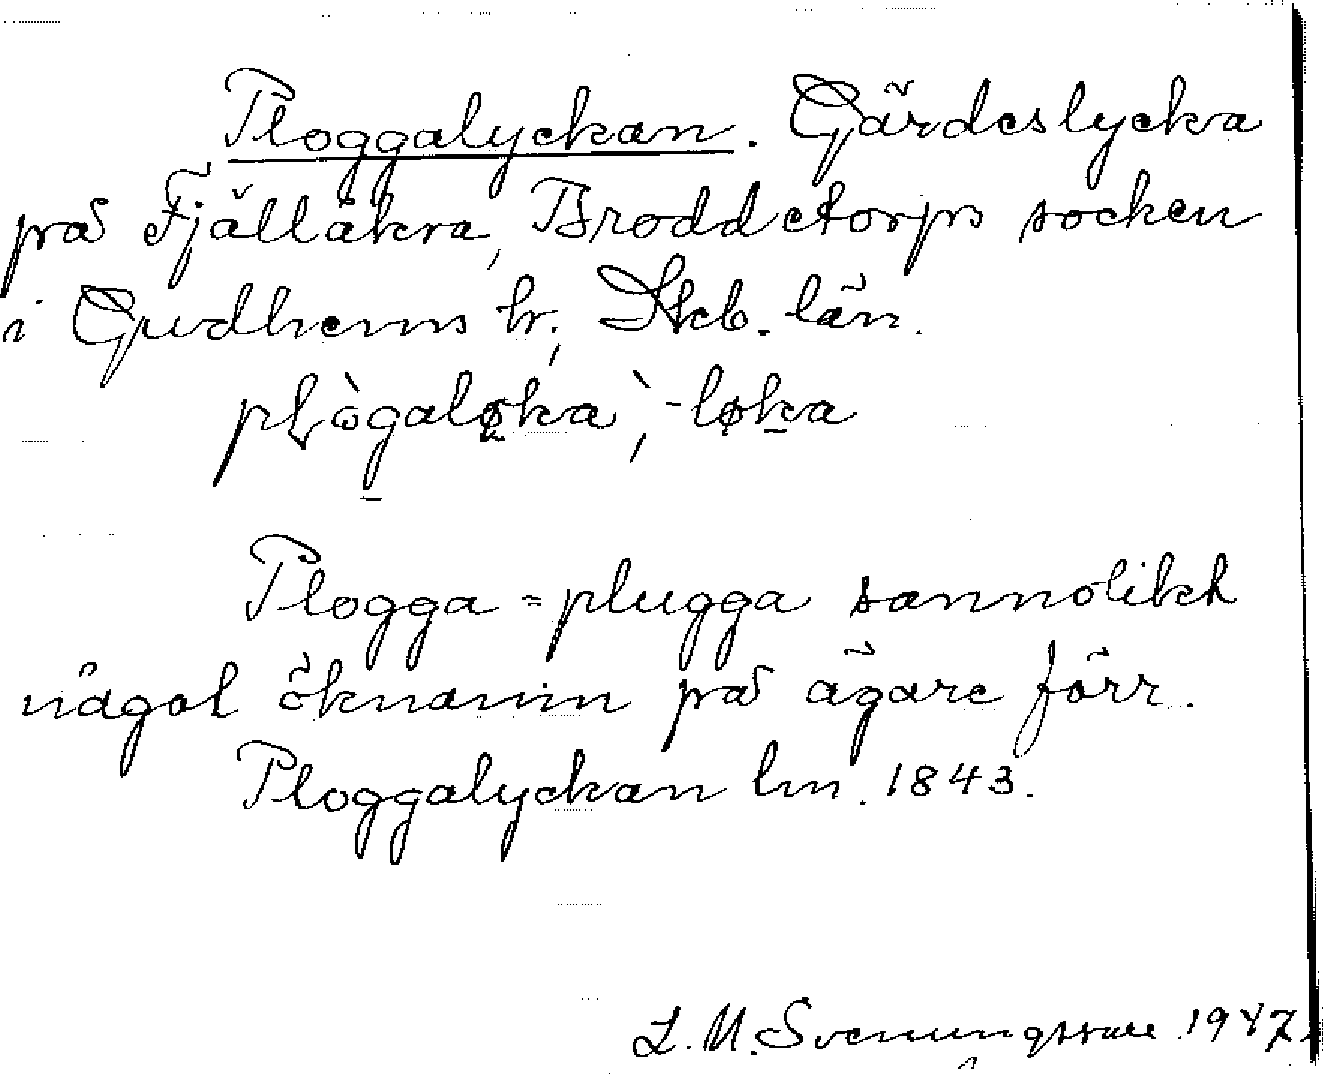 Ploggalyckan. Gärdeslycka
på Fjällåkra, Broddetorps socken
i Gudhems hr, Skb. län.
plògaløka, -løka
Plogga = plugga sannolikt
något öknamn på ägare förr.
Ploggalyckan lm. 1843.
L. M. Svenungsson 1947.